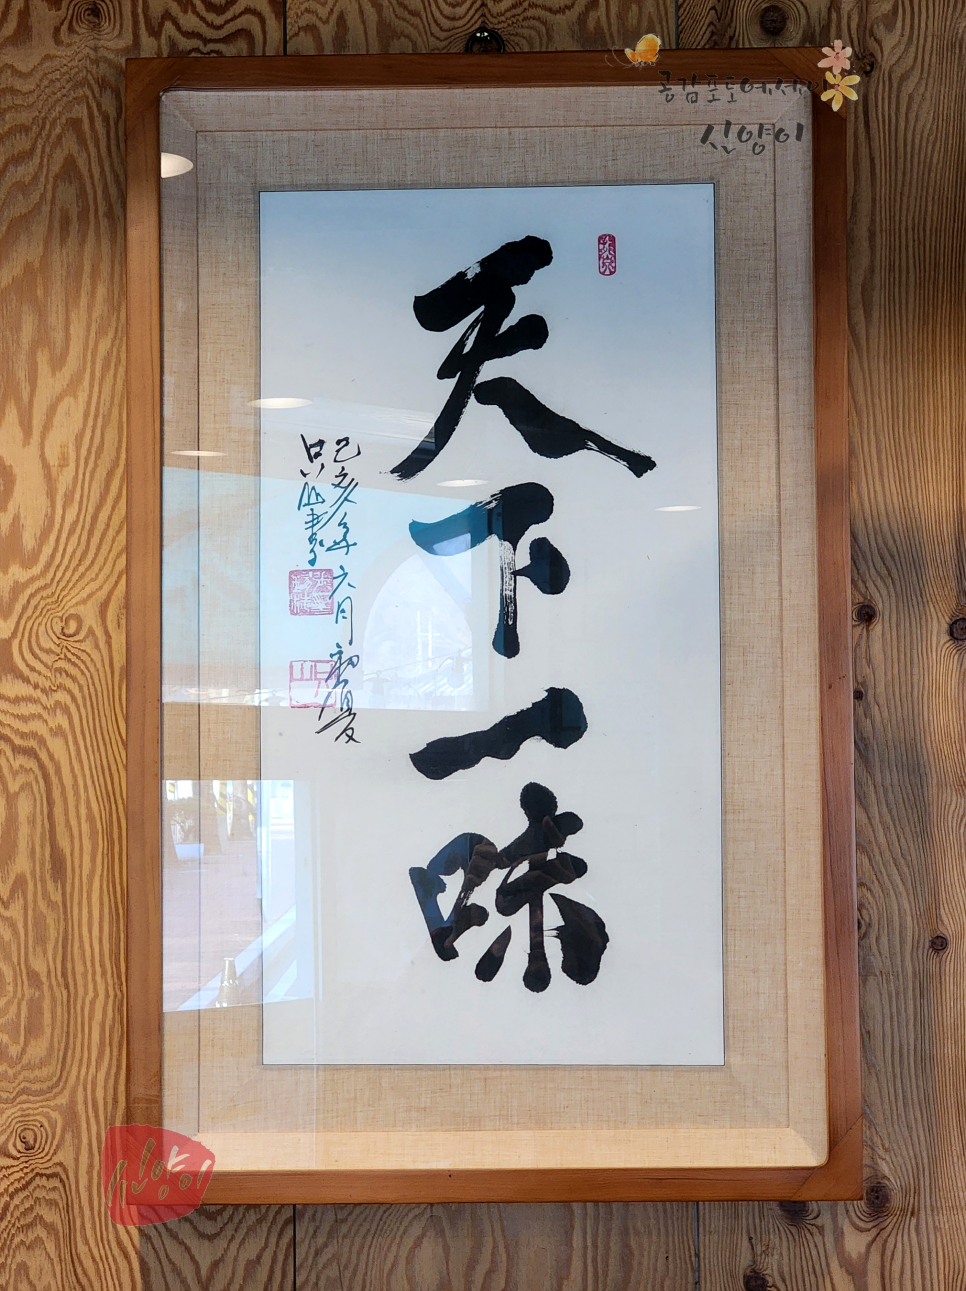 공감포토에서
신양이
天下一味
己亥年六月初夏
신양이